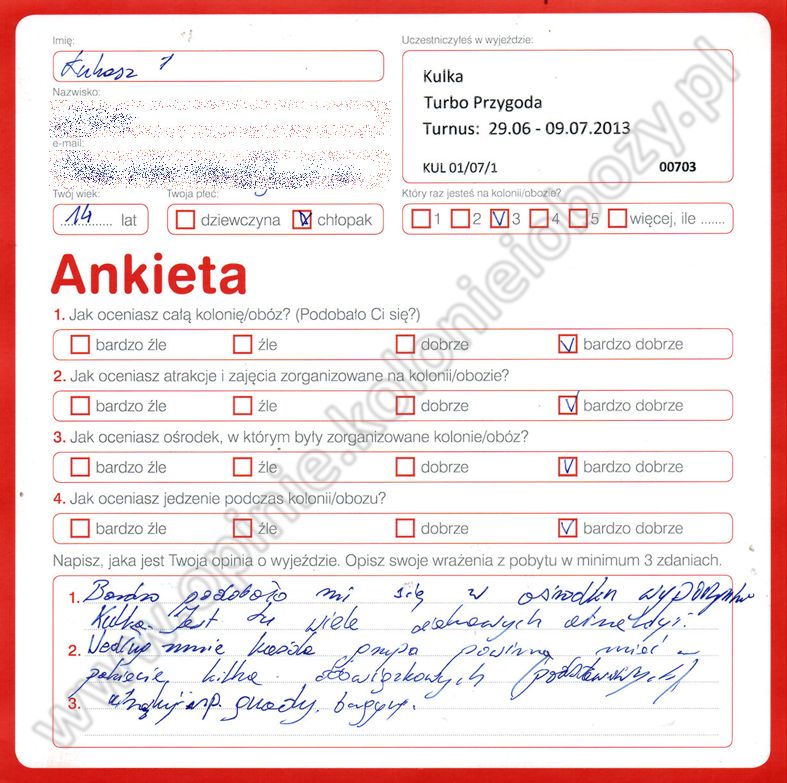 Imię:
Łukasz
Uczestniczyłeś w wyjeździe:
Kulka
Turbo Przygoda
Turnus: 29.06 - 09.07.2013
KUL 01/07/1 00703
Nazwisko:
e-mail:
Twój wiek: Twoja płeć: Który raz jesteś na kolonii/obozie?
14 lat dziewczyna chłopak 1 2 3 4 5 więcej, ile .......
Ankieta
1. Jak oceniasz całą kolonię/obóz? (Podobało Ci się?)
bardzo źle źle dobrze bardzo dobrze
2. Jak oceniasz atrakcje i zajęcia zorganizowane na kolonii/obozie?
bardzo źle źle dobrze bardzo dobrze
3. Jak oceniasz ośrodek, w którym były zorganizowane kolonie/obóz?
bardzo źle źle dobrze bardzo dobrze
4. Jak oceniasz jedzenie podczas kolonii/obozu?
bardzo źle źle dobrze bardzo dobrze
Napisz, jaka jest Twoja opinia o wyjeździe. Opisz swoje wrażenia z pobytu w minimum 3 zdaniach.
1. Bardzo podobało mi się w ośrodku
Kulka. Jest tu wiele ciekawych atrakcji.
2. Według mnie każda grupa powinna mieć w
pakiecie kilka obowiązkowych (podstawowych)
3. atrakcji np. quady, baggy.
www.opinie.kolonieiobozy.pl